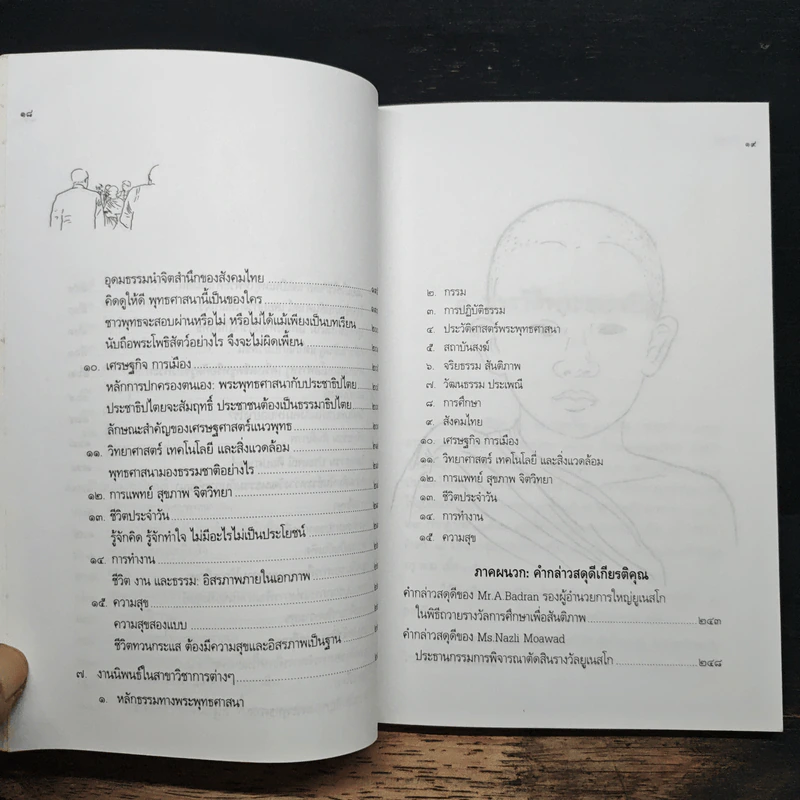 ๑๘
อุดมธรรมนำจิตสำนึกของสังคมไทย
คิดดูให้ดี พุทธศาสนานี้เป็นของใคร
ชาวพุทธจะสอบผ่านหรือไม่ หรือไม่ได้แม้เพียงเป็นบทเรียน
นับถือพระโพธิสัตว์อย่างไร จึงจะไม่ผิดเพี้ยน
๑๐. เศรษฐกิจ การเมือง
หลักการปกครองตนเอง: พระพุทธศาสนากับประชาธิปไตย
ประชาธิปไตยจะสัมฤทธิ์ ประชาชนต้องเป็นธรรมาธิปไตย
ลักษณะสำคัญของเศรษฐศาสตร์แนวพุทธ
๑๑. วิทยาศาสตร์ เทคโนโลยี และสิ่งแวดล้อม
พุทธศาสนามองธรรมชาติอย่างไร
๑๒. การแพทย์ สุขภาพ จิตวิทยา
๑๓. ชีวิตประจำวัน
รู้จักคิด รู้จักทำใจ ไม่มีอะไรไม่เป็นประโยชน์
๑๔. การทำงาน
ชีวิต งาน และธรรม: อิสรภาพภายในเอกภาพ
๑๕. ความสุข
ความสุขสองแบบ
ชีวิตทวนกระแส ต้องมีความสุขและอิสรภาพเป็นฐาน
๗. งานนิพนธ์ในสาขาวิชาการต่างๆ
๑. หลักธรรมทางพระพุทธศาสนา
๑๙
๒. กรรม
๓. การปฏิบัติธรรม
๔. ประวัติศาสตร์พระพุทธศาสนา
๕. สถาบันสงฆ์
๖. จริยธรรม สันติภาพ
๗. วัฒนธรรม ประเพณี
๘. การศึกษา
๙. สังคมไทย
๑๐. เศรษฐกิจ การเมือง
๑๑. วิทยาศาสตร์ เทคโนโลยี และสิ่งแวดล้อม
๑๒. การแพทย์ สุขภาพ จิตวิทยา
๑๓. ชีวิตประจำวัน
๑๔. การทำงาน
๑๕. ความสุข
ภาคผนวก: คำกล่าวสดุดีเกียรติคุณ
คำกล่าวสดุดีของ Mr.A.Badran รองผู้อำนวยการใหญ่ยูเนสโก
ในพิธีถวายรางวัลการศึกษาเพื่อสันติภาพ ๒๔๓
คำกล่าวสดุดีของ Ms.Nazli Moawad
ประธานกรรมการพิจารณาตัดสินรางวัลยูเนสโก ๒๔๘